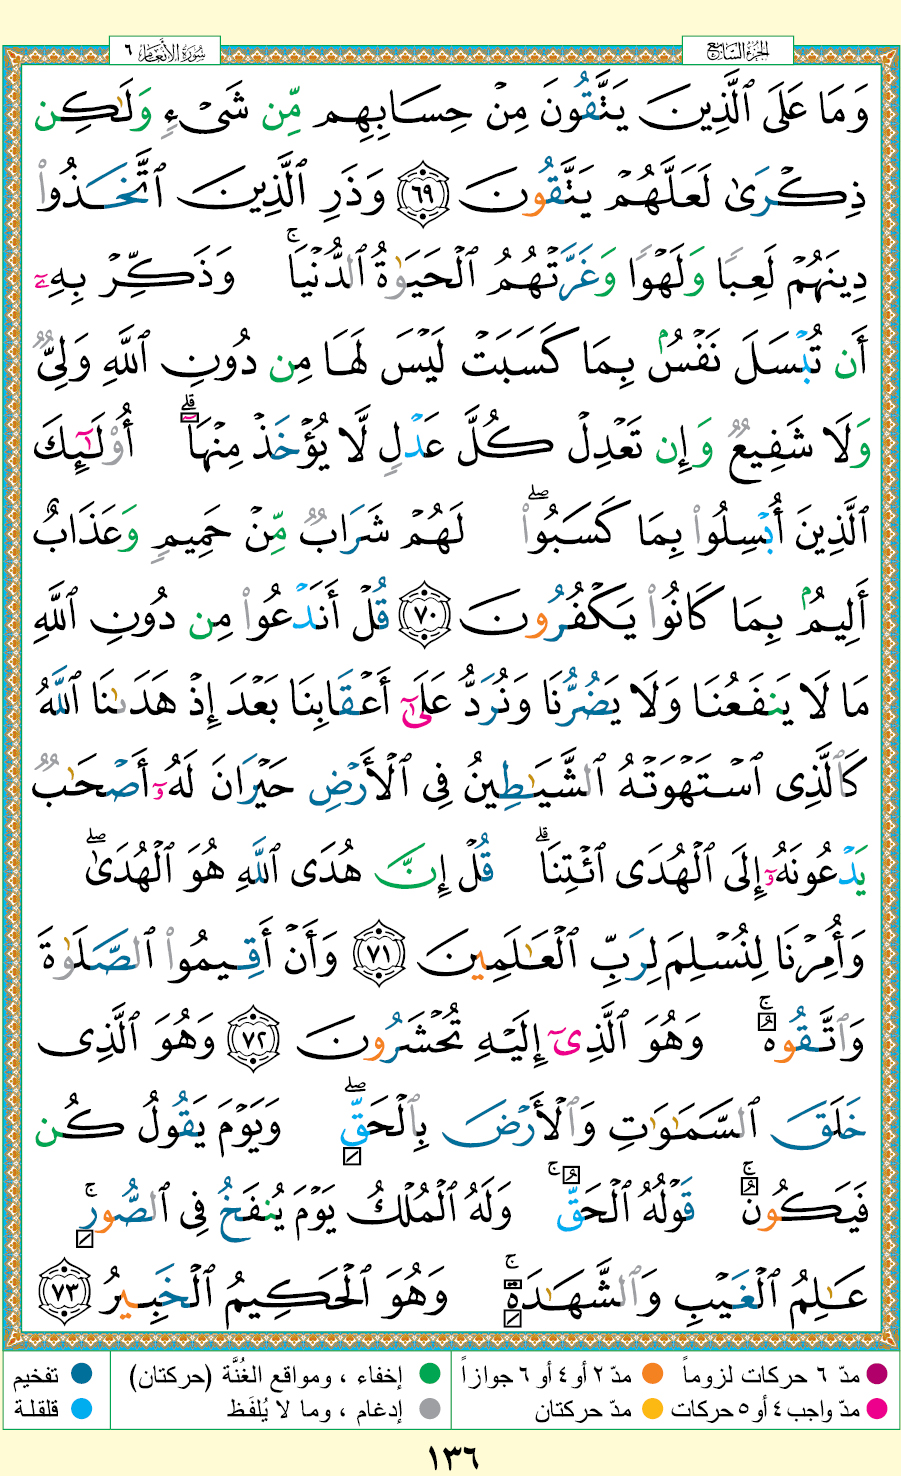 الجزء السابع
سورة الأنعام ٦
وَمَا عَلَى ٱلَّذِينَ يَتَّقُونَ مِنْ حِسَابِهِم مِّن شَىْءٍ وَلَٰكِن
ذِكْرَىٰ لَعَلَّهُمْ يَتَّقُونَ ٦٩ وَذَرِ ٱلَّذِينَ ٱتَّخَذُوا۟
دِينَهُمْ لَعِبًا وَلَهْوًا وَغَرَّتْهُمُ ٱلْحَيَوٰةُ ٱلدُّنْيَا ۚ وَذَكِّرْ بِهِۦٓ
أَن تُبْسَلَ نَفْسٌۢ بِمَا كَسَبَتْ لَيْسَ لَهَا مِن دُونِ ٱللَّهِ وَلِىٌّ
وَلَا شَفِيعٌ وَإِن تَعْدِلْ كُلَّ عَدْلٍ لَّا يُؤْخَذْ مِنْهَآ ۗ أُو۟لَٰٓئِكَ
ٱلَّذِينَ أُبْسِلُوا۟ بِمَا كَسَبُوا۟ ۖ لَهُمْ شَرَابٌ مِّنْ حَمِيمٍ وَعَذَابٌ
أَلِيمٌۢ بِمَا كَانُوا۟ يَكْفُرُونَ ٧٠ قُلْ أَنَدْعُوا۟ مِن دُونِ ٱللَّهِ
مَا لَا يَنفَعُنَا وَلَا يَضُرُّنَا وَنُرَدُّ عَلَىٰٓ أَعْقَابِنَا بَعْدَ إِذْ هَدَىٰنَا ٱللَّهُ
كَٱلَّذِى ٱسْتَهْوَتْهُ ٱلشَّيَٰطِينُ فِى ٱلْأَرْضِ حَيْرَانَ لَهُۥٓ أَصْحَٰبٌ
يَدْعُونَهُۥٓ إِلَى ٱلْهُدَى ٱئْتِنَا ۗ قُلْ إِنَّ هُدَى ٱللَّهِ هُوَ ٱلْهُدَىٰ ۖ
وَأُمِرْنَا لِنُسْلِمَ لِرَبِّ ٱلْعَٰلَمِينَ ٧١ وَأَنْ أَقِيمُوا۟ ٱلصَّلَوٰةَ
وَٱتَّقُوهُ ۚ وَهُوَ ٱلَّذِىٓ إِلَيْهِ تُحْشَرُونَ ٧٢ وَهُوَ ٱلَّذِى
خَلَقَ ٱلسَّمَٰوَٰتِ وَٱلْأَرْضَ بِٱلْحَقِّ ۖ وَيَوْمَ يَقُولُ كُن
فَيَكُونُ ۚ قَوْلُهُ ٱلْحَقُّ ۚ وَلَهُ ٱلْمُلْكُ يَوْمَ يُنفَخُ فِى ٱلصُّورِ ۚ
عَٰلِمُ ٱلْغَيْبِ وَٱلشَّهَٰدَةِ ۚ وَهُوَ ٱلْحَكِيمُ ٱلْخَبِيرُ ٧٣
مدّ ٦ حركات لزوماً
مدّ ٢ أو ٤ أو ٦ جوازاً
إخفاء ، ومواقع الغُنَّة (حركتان)
تفخيم
مدّ واجب ٤ أو ٥ حركات
مدّ حركتان
إدغام ، وما لا يُلفَظ
قلقلة
١٣٦